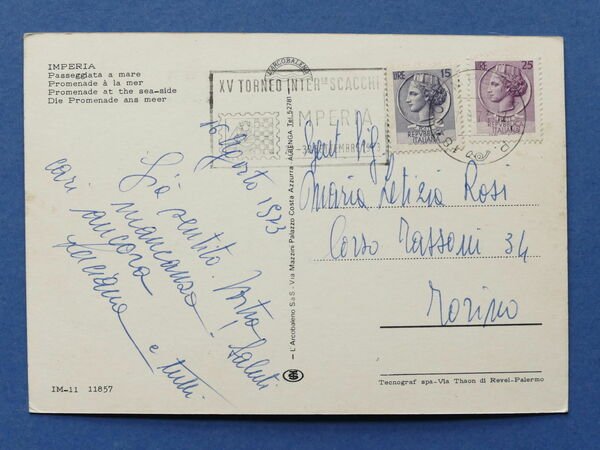 IMPERIA
Passeggiata a mare
Promenade à la mer
Promenade at the sea-side
Die Promenade ans meer
ARCOBALENO
XV TORNEO INTER.LE SCACCHI
IMPERIA
LIRE 15
POSTE REPUBBLICA ITALIANA
LIRE 25
POSTE REPUBBLICA ITALIANA
16 Agosto 1973
Già sentito. Vostra
mancanza.
ancora
cari Saluti
Luciana e tutti.
L'Arcobaleno S.a.S - Via Mazzini Palazzo Costa Azzurra - ALBENGA Tel. 52781
Gent Sig.
Maria Letizia Rosi
Corso Tassoni 34
Torino
IM-11 11857
Tecnograf spa-Via Thaon di Revel-Palermo